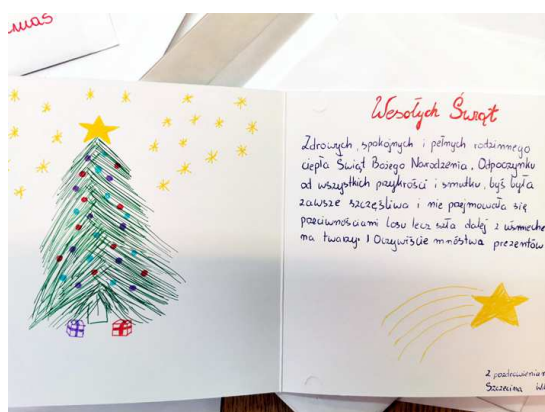 Wesołych Świąt
Zdrowych, spokojnych i pełnych rodzinnego
ciepła Świąt Bożego Narodzenia. Odpoczynku
od wszystkich przykrości i smutku, byś była
zawsze szczęśliwa i nie przejmowała się
przeciwnościami losu lecz szła dalej z uśmieche
na twarzy. I Oczywiście mnóstwa prezentów
z pozdrowienia